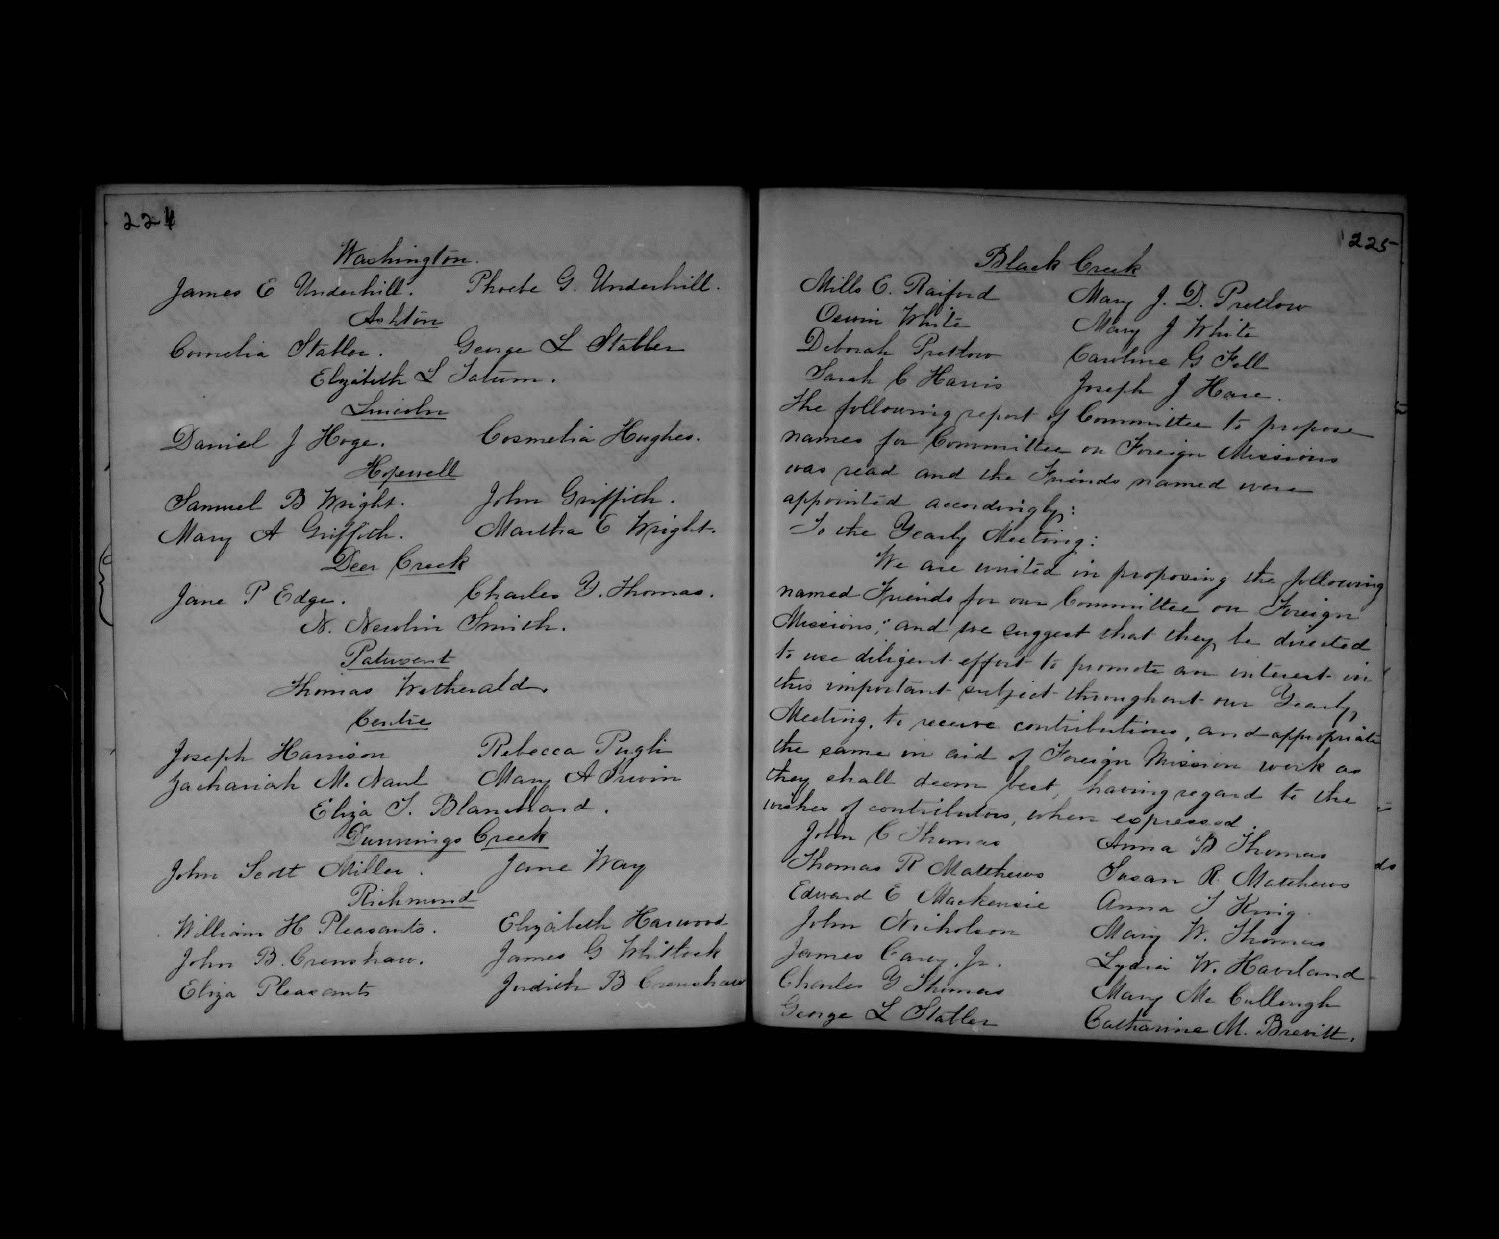 224
Washington.
James E Underhill. Phoebe G. Underhill.
Ashton
Cornelia Stabler. George L Stabler
Elizabeth L Tatum.
Lincoln
Daniel J Hoge. Cosmelia Hughes.
Hopewell
Samuel B Wright. John Griffith.
Mary A Griffith. Martha E Wright.
Deer Creek
Jane P Edge. Charles Y. Thomas.
N. Newlin Smith.
Patuxent
Thomas Wetherald.
Centre
Joseph Harrison Rebecca Pugh
Zachariah McNaul Mary A Irwin
Eliza T. Blanchard.
Dunnings Creek
John Scott Miller. Jane Way
Richmond
William H Pleasants. Elizabeth Harwood
John B. Crenshaw. James G Whitlock
Eliza Pleasants Judith B Crenshaw
225
Black Creek
Mills E. Raiford Mary J. D. Pretlow
Oswin White Mary J White
Deborah Pretlow Caroline G Fell
Sarah C Harris Joseph J Hare.
The following report of Committee to propose
names for Committee on Foreign Missions
was read and the Friends named were
appointed accordingly:
To the Yearly Meeting:
We are united in proposing the following
named Friends for our Committee on Foreign
Missions; and we suggest that they be directed
to use diligent effort to promote an interest in
this important subject throughout our Yearly
Meeting, to receive contributions, and appropriate
the same in aid of Foreign Mission work as
they shall deem best, having regard to the
wishes of contributors, when expressed.
John C Thomas Anna B Thomas
Thomas R Matthews Susan R. Matthews
Edward E Mackenzie Anna T King.
John Nicholson Mary W. Thomas
James Carey, Jr. Lydia W. Haviland
Charles Y Thomas Mary Mc Cullough
George L Stabler Catharine M. Brevitt.